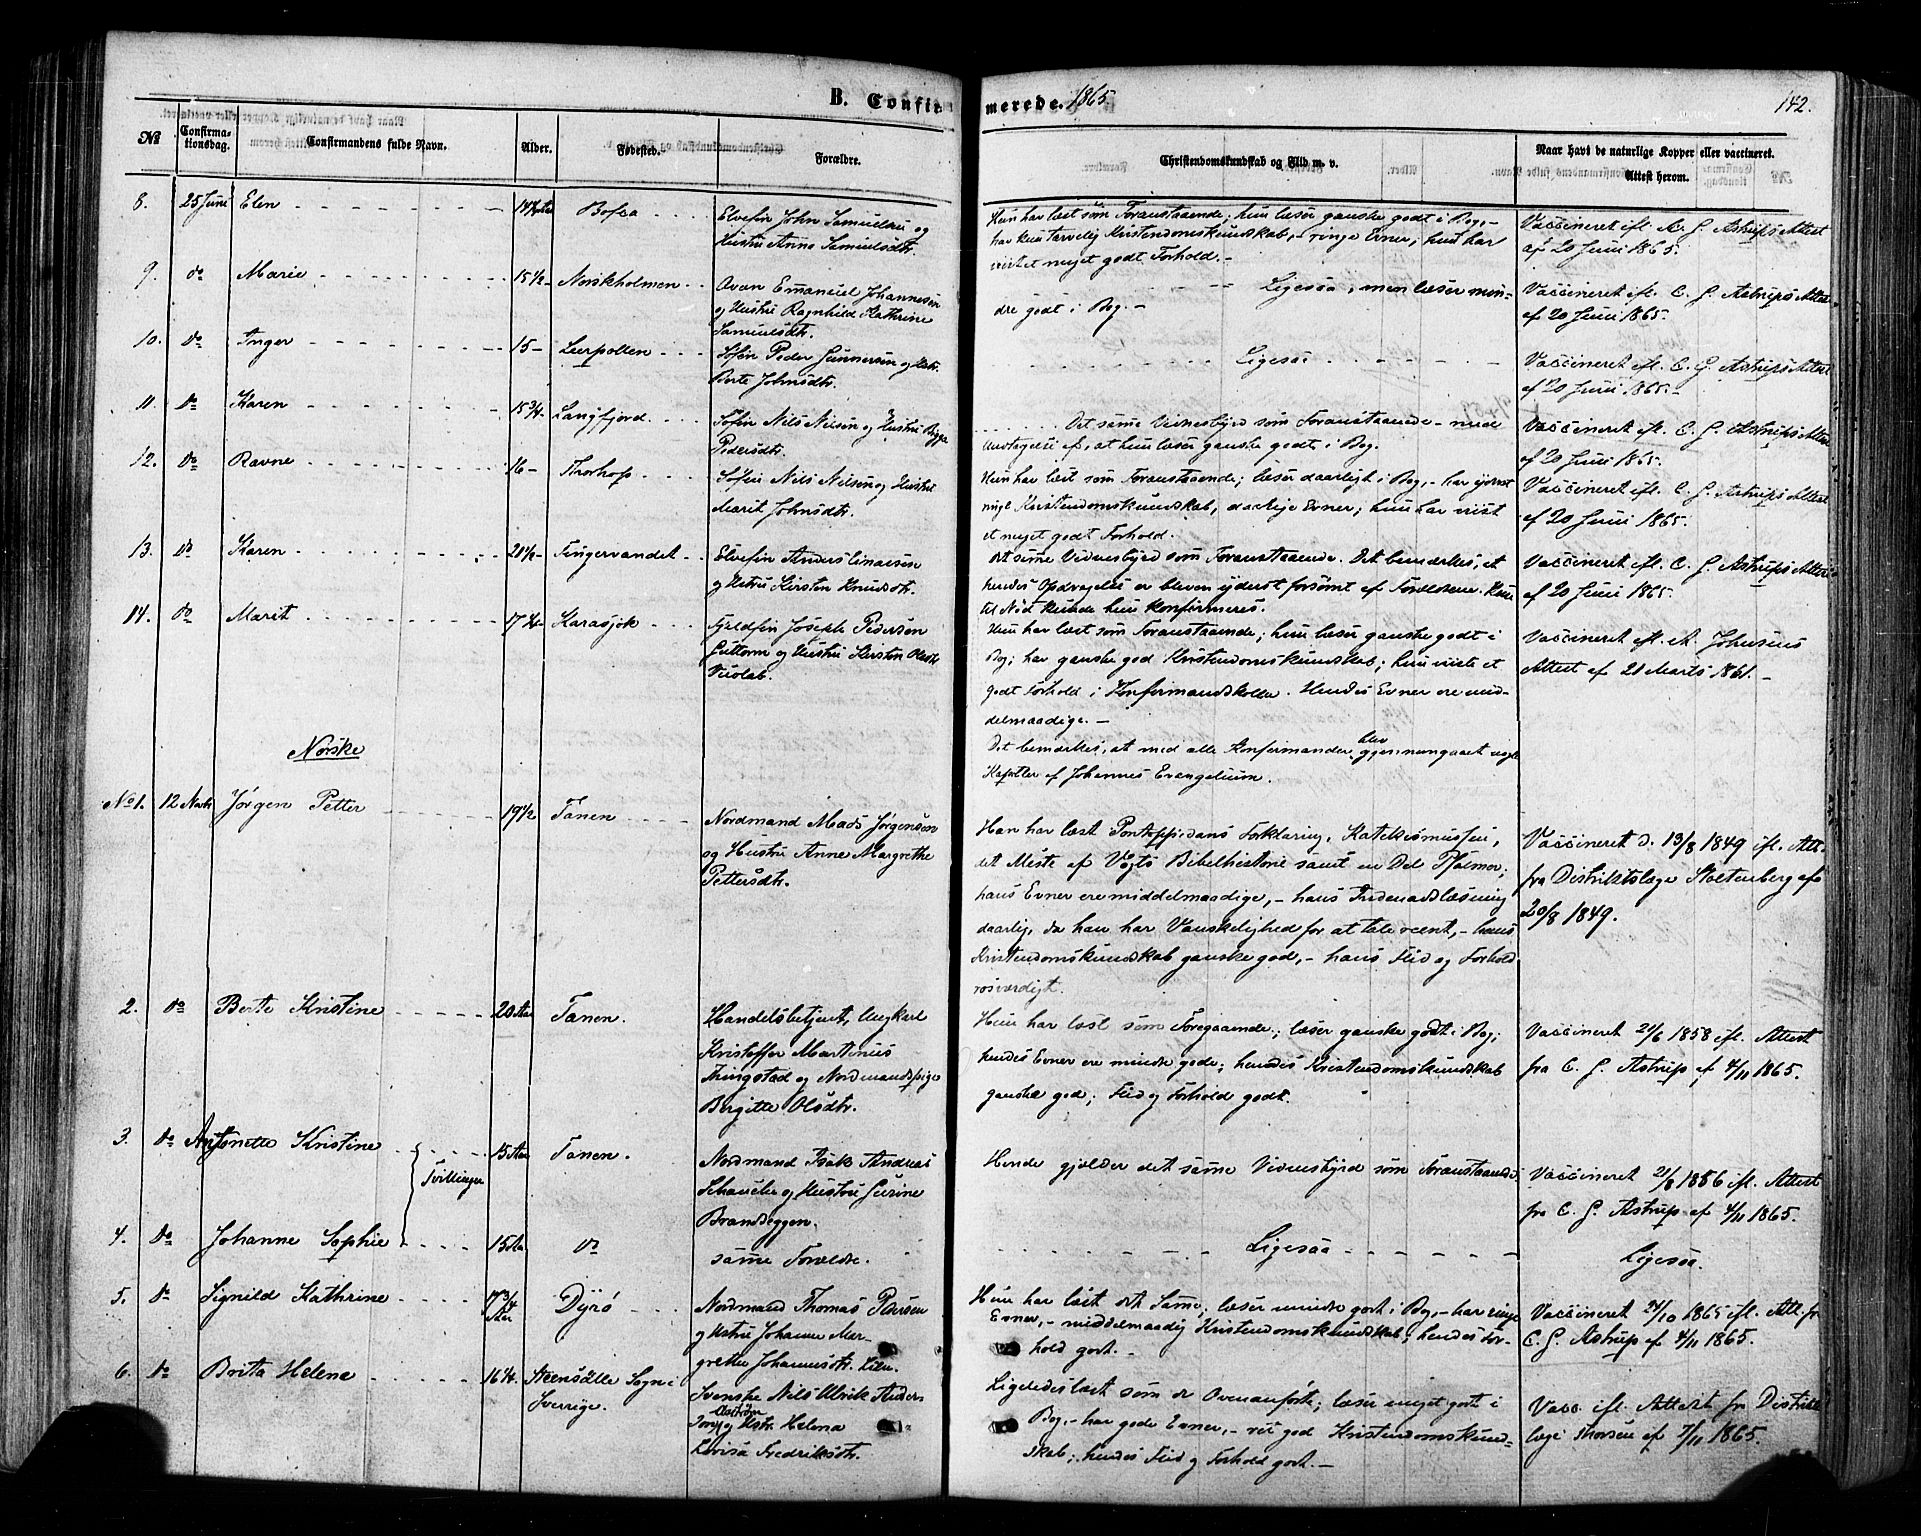 B. Confirmerede. 1865.
142.
№
Confirmationsdag.
Confirmandens fulde Navn.
Alder.
Fødested.
Forældre.
Christendomskundskab og Flid m. v.
Naar havt de naturlige Kopper eller vaccineret.
Attest herom.
8. 25 Juni Elen
Elvefin John Samuelsen og
Hustru Anne Samuelsdtr.
Hun har læst som Foranstaaende; hun læser ganske godt i Bog,-
har kun tarvelig Kristendomskundskab, - ringe Evner; hun har
vist et meget godt Forhold. -
Vaccineret ifl. C. G. Astrups Attest
af 20 Juni 1865.
9. do Marie 15 1/2 Norskholmen
Emanuel Johannesen
og Hustru Ragnhild Kathrine
Samuelsdtr.
Ligesaa; men læser min-
dre godt i Bog. -
Vaccineret ifl. C. G. Astrups Attest
af 20 Juni 1865.
10. do Inger 15 - Leerpollen
Søfin Peder Gunnersen og Hustr.
Berte Johnsdtr.
Ligesaa
Vaccineret ifl. C. G. Astrups Attest
af 20 Juni 1865.
11. do Karen 15 3/4 Langfjord
Søfin Nils Nilsen og Hustru
Pedersdtr.
Det samme Vidnesbyrd som Foranstaaende - med
Undtagelse af, at hun læser ganske godt i Bog.
Vaccineret ifl. C. G. Astrups Attest
af 20 Juni 1865.
12. do Ravne 16 - Thorhop
Søfin Nils Nilsen og Hustru
Marit Johnsdtr.
Hun har læst som Foranstaaende; læser daarligt i Bog, - har yderst
ringe Kristendomskundskab, daarlige Evner; hun har vist
et meget godt Forhold.
Vaccineret ifl. C. G. Astrups Attest
af 20 Juni 1865.
13. do Karen 20 1/2 Fingervandet
Elvefin Anders Einarsen
og Hustru Kirsten Knudsdtr.
det samme Vidnesbyrd som Foranstaaende. Det bemærkes, at
hendes Opdragelse er bleven yderst forsømt af Forældrene. Kun
til Nød kunde hun konfirmeres.
Vaccineret ifl. C. G. Astrups Attest
af 20 Juni 1865.
14. do Marit Karasjok
Fjeldfin Joseph Pedersen
Guttorm og Hustru Kirsten Olsdtr
Hun har læst som Foranstaaende; hun læser ganske godt i
Bog; har ganske god Kristendomskundskab; hun viste et
godt Forhold i Konfirmandskolen. Hendes Evner ere mid-
delmaadige. -
Vaccineret ifl. A. Johnsens
Attest af 21 Marts 1861. -
Det bemærkes, at med alle Konfirmander blev gjennemgaaet nogle
Kapitler af Johannes Evangelium.
Norske
No 1. 12 Novbr Jørgen Petter 19 1/2 Tanen
Nordmand Mads Jørgensen
og Hustru Anne Margrethe
Pettersdtr.
Han har læst Pontoppidans Forklaring, Katekismusen,
det Meste af Vogts Bibelhistorie samt en Del Psalmer;
hans Evner ere middelmaadige, - hans Indenadlæsning
daarlig, da han har Vanskelighed for at tale reent, - hans
Kristendomskundskab ganske god, - hans Flid og Forhold
rosværdigt.
Vaccineret d. 13/8 1849 ifl. Att.
fra Distriktslæge Stoltenberg af
20/8 1849.
2. do Berte Kristine 20 Aar Tanen.
Handelsbetjent, Ungkarl
Kristoffer Martinus
Thingstad og Nordmandspige
Birgitte Olsdtr.
Hun har læst som Foregaaende; læser ganske godt i Bog;
hendes Evner ere mindre gode; hendes Kristendomskundskab
ganske god; Flid og Forhold godt.
Vaccineret 21/6 1858 ifl. Attest
fra C. G. Astrup af 4/11 1865.
3. do Antonette Kristine 15 Aar Tanen.
Tvillinger
Nordmand Isak Andreas
Schanche og Hustru Gurine
Brandeggen.
Hende gjælder det samme Vidnesbyrd som Foranstaaende
Vaccineret 21/8 1856 ifl. Attest
fra C. G. Astrup af 4/11 1865.
4. do Johanne Sophie 15 Aar do
samme Forældre.
Ligesaa
Ligesaa.
5. do Signild Kathrine 17 3/4 Aar Dyrø
Nordmand Thomas Pedersen
og Hustru Johanne Mar-
grethe Johannesdtr.
Hun har læst det Samme, læser mindre godt i Bog, - har ringe
Evner, - middelmaadig Kristendomskundskab; hendes For-
hold godt. -
Vaccineret 24/10 1865 ifl. Att. fr
C. G. Astrup af 4/11 1865.
6. do Brita Helene 16 1/4 Steensälle Sogn i
Sverrige.
Svenske Nils Ulrik Anders
son og Hustr. Helena
Lovisa Fredriksdtr.
Ligeledes læst som de Ovenanførte; læser meget godt i
Bog, - har gode Evner, - ret god Kristendomskund-
skab; hendes Flid og Forhold godt. -
Vacc. ifl. Attest fr Distrikts
læge Thorsen af 7/11 1865.